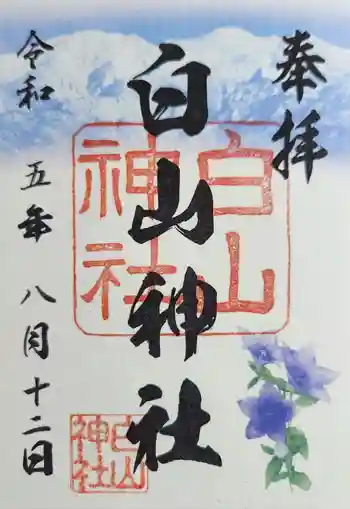 奉拝
白山神社
令和五年八月十二日
白山神社
白山神社